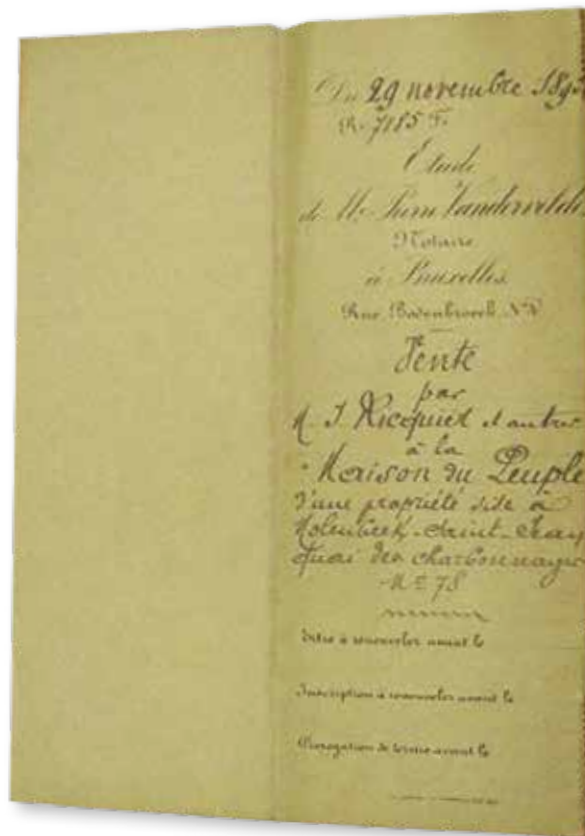 Du 29 novembre 189
R. 7185 F.
Etude
de Me Pierre Vandervelde
Notaire
à Bruxelles
Rue Bodenbroeck, N°
Vente
par
M. J. Ricquiet et autres
à la
"Maison du Peuple
d'une propriété sise à
Molenbeek-Saint-Jean
Quai des charbonnages
N° 78
Titre à renouveler avant le
Inscription à renouveler avant le
Prorogation de terme avant le